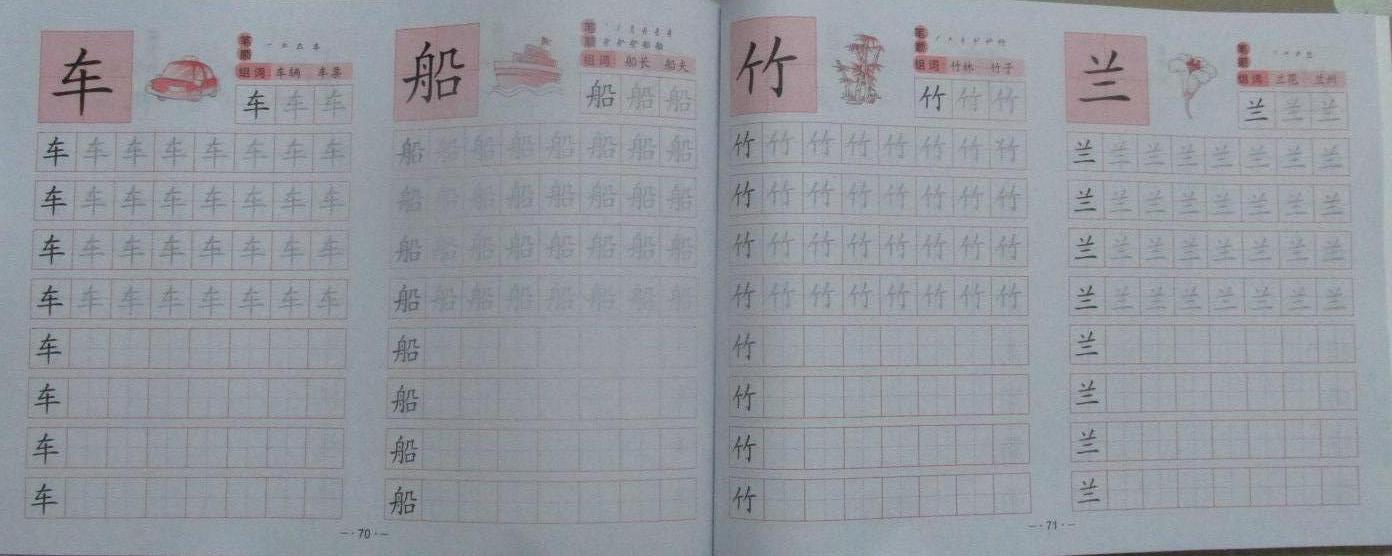 车
笔顺
组词 车辆 车票
车车车
车车车车车车车车
车车车车车车车车
车车车车车车车车
车车车车车车车车
车
车
车
车
船
笔顺
组词 船长 船夫
船船船
船船船船船船船船
船船船船船船船船
船船船船船船船船
船船船船船船船船
船
船
船
船
-·70·-
竹
笔顺
组词 竹林 竹子
竹竹竹
竹竹竹竹竹竹竹竹
竹竹竹竹竹竹竹竹
竹竹竹竹竹竹竹竹
竹竹竹竹竹竹竹竹
竹
竹
竹
竹
兰
笔顺
组词 兰花 兰州
兰兰兰
兰兰兰兰兰兰兰兰
兰兰兰兰兰兰兰兰
兰兰兰兰兰兰兰兰
兰兰兰兰兰兰兰兰
兰
兰
兰
兰
-·71·-